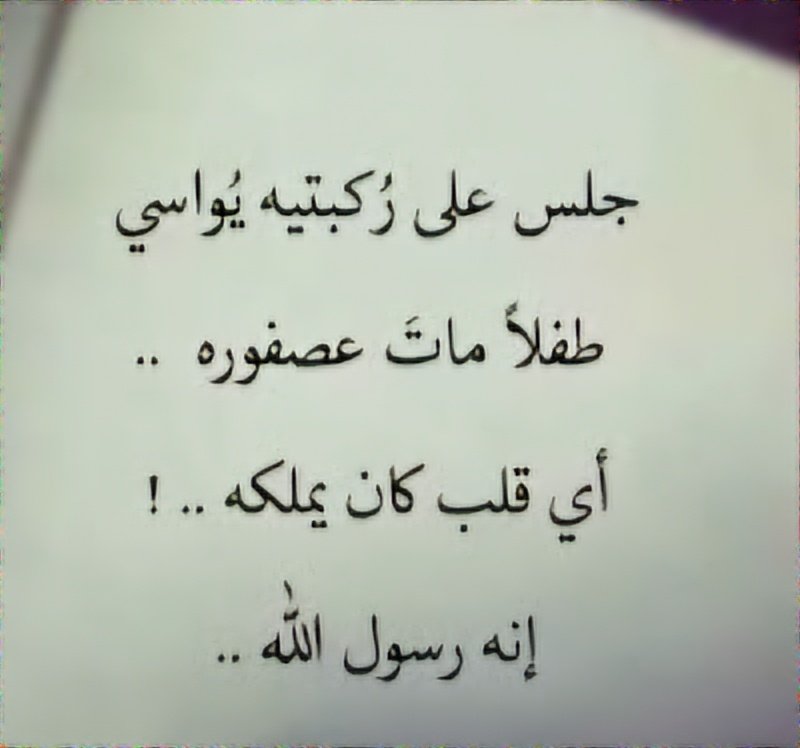 جلس على رُكبتيه يُواسي
طفلاً ماتَ عصفوره ..
أي قلب كان يملكه .. !
إنه رسول الله ..